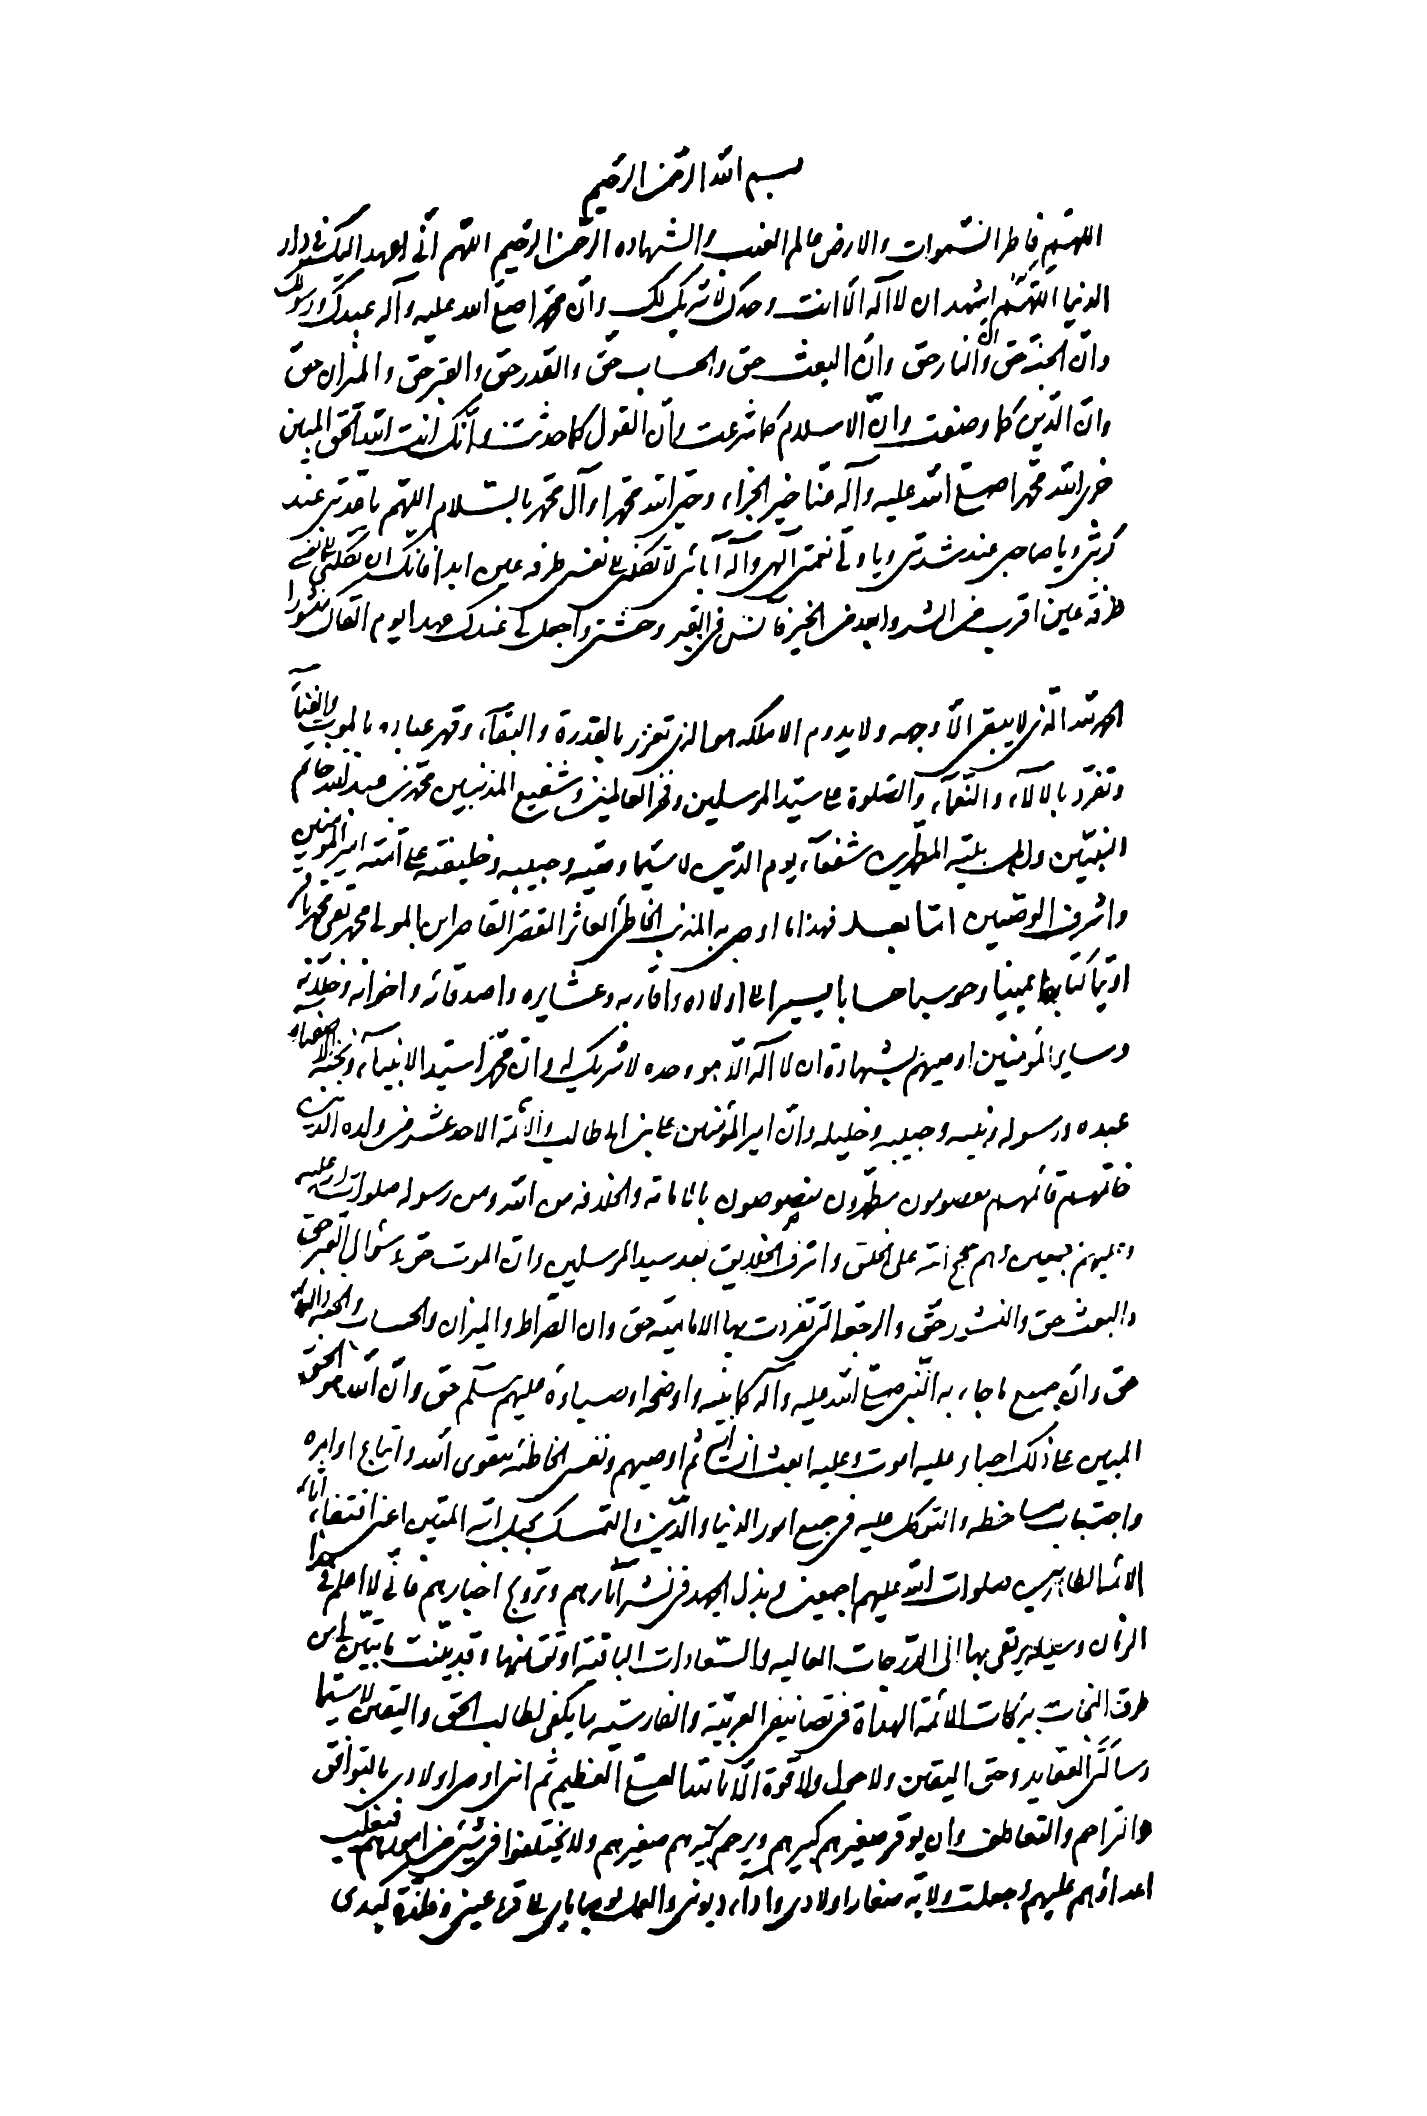 بسم الله الرحمن الرحيم
اللهم فاطر السموات والارض عالم الغيب والشهاده الرحمن الرحيم اللهم انى اعهد اليك فى دار
الدنيا اللهم انى اشهد ان لا اله الا انت وحدك لا شريك لك وان محمدا صلى الله عليه وآله عبدك ورسولك
وان الجنة حق وان النار حق وان البعث حق والحساب حق والقدر حق والقبر حق والميزان حق
وان الدين كما وصفت وان الاسلام كما شرعت وان القول كما حدثت وانك انت الله الحق المبين
جزى الله محمدا صلى الله عليه وآله عنا خير الجزاء وحيى الله محمدا وآل محمد بالسلام اللهم يا عدتى عند
كربتى ويا صاحبى عند شدتى ويا ولى نعمتى الهى واله آبائى لا تكلنى الى نفسى طرفه عين ابدا فانك ان تكلنى الى نفسى
طرفة عين اقرب من الشر وابعد من الخير فآنس فى القبر وحشتى واجعل لى عندك عهدا يوم القاك منشورا
الحمد لله الذى لا يبقى الا وجهه ولا يدوم الا ملكه هو الذى تعزز بالقدرة والبقآء وقهر عباده بالموت والفنآء
وتفرد بالآلاء والنعمآء والصلوة على سيد المرسلين وفخر العالمين وشفيع المذنبين محمد بن عبد الله خاتم
النبيين واهل بيته المطهرين شفعآء يوم الدين لا سيما وصيه وحبيبه وخليفته على امته امير المومنين
واشرف الوصيين اما بعد فهذا ما اوصى به المذنب الخاطى العاثر المقصر القاصر ابن المولى محمد تقى محمد باقر
اوتيا كتابهما يمينا وحوسبا حسابا يسيرا الى اولاده واقاربه وعشايره واصدقائه واخوانه وخلانه
وساير المؤمنين اوصيهم بشهادة ان لا اله الا هو وحده لا شريك له وان محمدا سيد الانبيآء ونخبة الاصفياء
عبده ورسوله ونبيه وحبيبه وخليله وان امير المؤمنين على بن ابى طالب والائمة الاحد عشر من ولده الذين
خاتمهم قائمهم معصومون مطهرون منصوصون بالامامة والخلافه من الله ومن رسوله صلوات الله عليه
وعليهم اجمعين وهم حجج الله على الخلق واشرف الخلايق بعد سيد المرسلين وان الموت حق وسوال القبر حق
والبعث حق والنشور حق والرجعة التى تفردت بها الاماميه حق وان الصراط والميزان والحساب والجنه والنار
حق وان جميع ما جاء به النبى صلى الله عليه وآله كما بينه واوضحه اوصياؤه عليهم سلم حق وان الله هو الحق
المبين على ذلك احيا وعليه اموت وعليه ابعث ان شاء الله ثم اوصيهم ونفسى الخاطئه بتقوى الله واتباع اوامره
واجتناب مساخطه والتوكل عليه فى جميع امور الدنيا والدين والتمسك بحبل الله المتين اعنى اقتفاء آثار
الائمه الطاهرين صلوات الله عليهم اجمعين وبذل الجهد فى نشر آثارهم وترويج اخبارهم فانى لا اعلم فى هذا
الزمان وسيله يرتقى بها الى الدرجات العاليه والسعادات الباقية اوثق منها وقد بينت ما تبين لى من
طرق النجات ببركات الائمة الهداة فى تصانيفى العربية والفارسيه ما يكفى لطالب الحق واليقين لا سيما
رسالتى العقايد وحق اليقين ولا حول ولا قوة الا بالله العلى العظيم ثم انى اوصى اولادى بالتوافق
والتراحم والتعاطف وان يوقر صغيرهم كبيرهم ويرحم كبيرهم صغيرهم ولا يختلفوا فى شيئ من امورهم فتغلب
اعداؤهم عليهم وجعلت ولاية صغار اولادى وادآء ديونى والعمل بوصاياى الى قرة عينى وفلذة كبدى